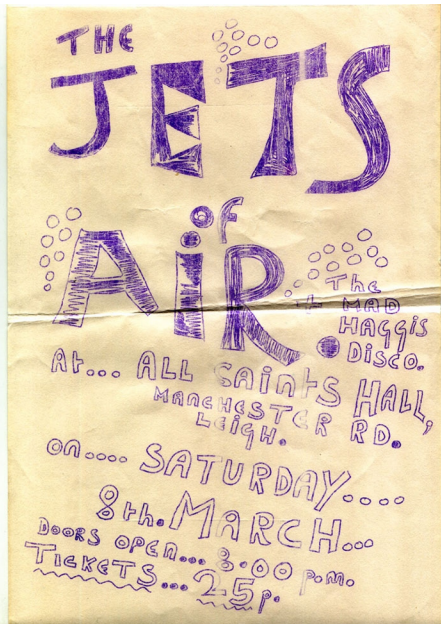 THE
JETS
of
AiR
+ The
MAD
HAGGIS
DiSCO.
At... ALL SaintS HALL,
MANCHESTER RD.
LEiGH.
on.... SATURDAY....
8th. MARCH...
DOORS OPEN... 8.00 p.m.
TiCKETS... 25p.